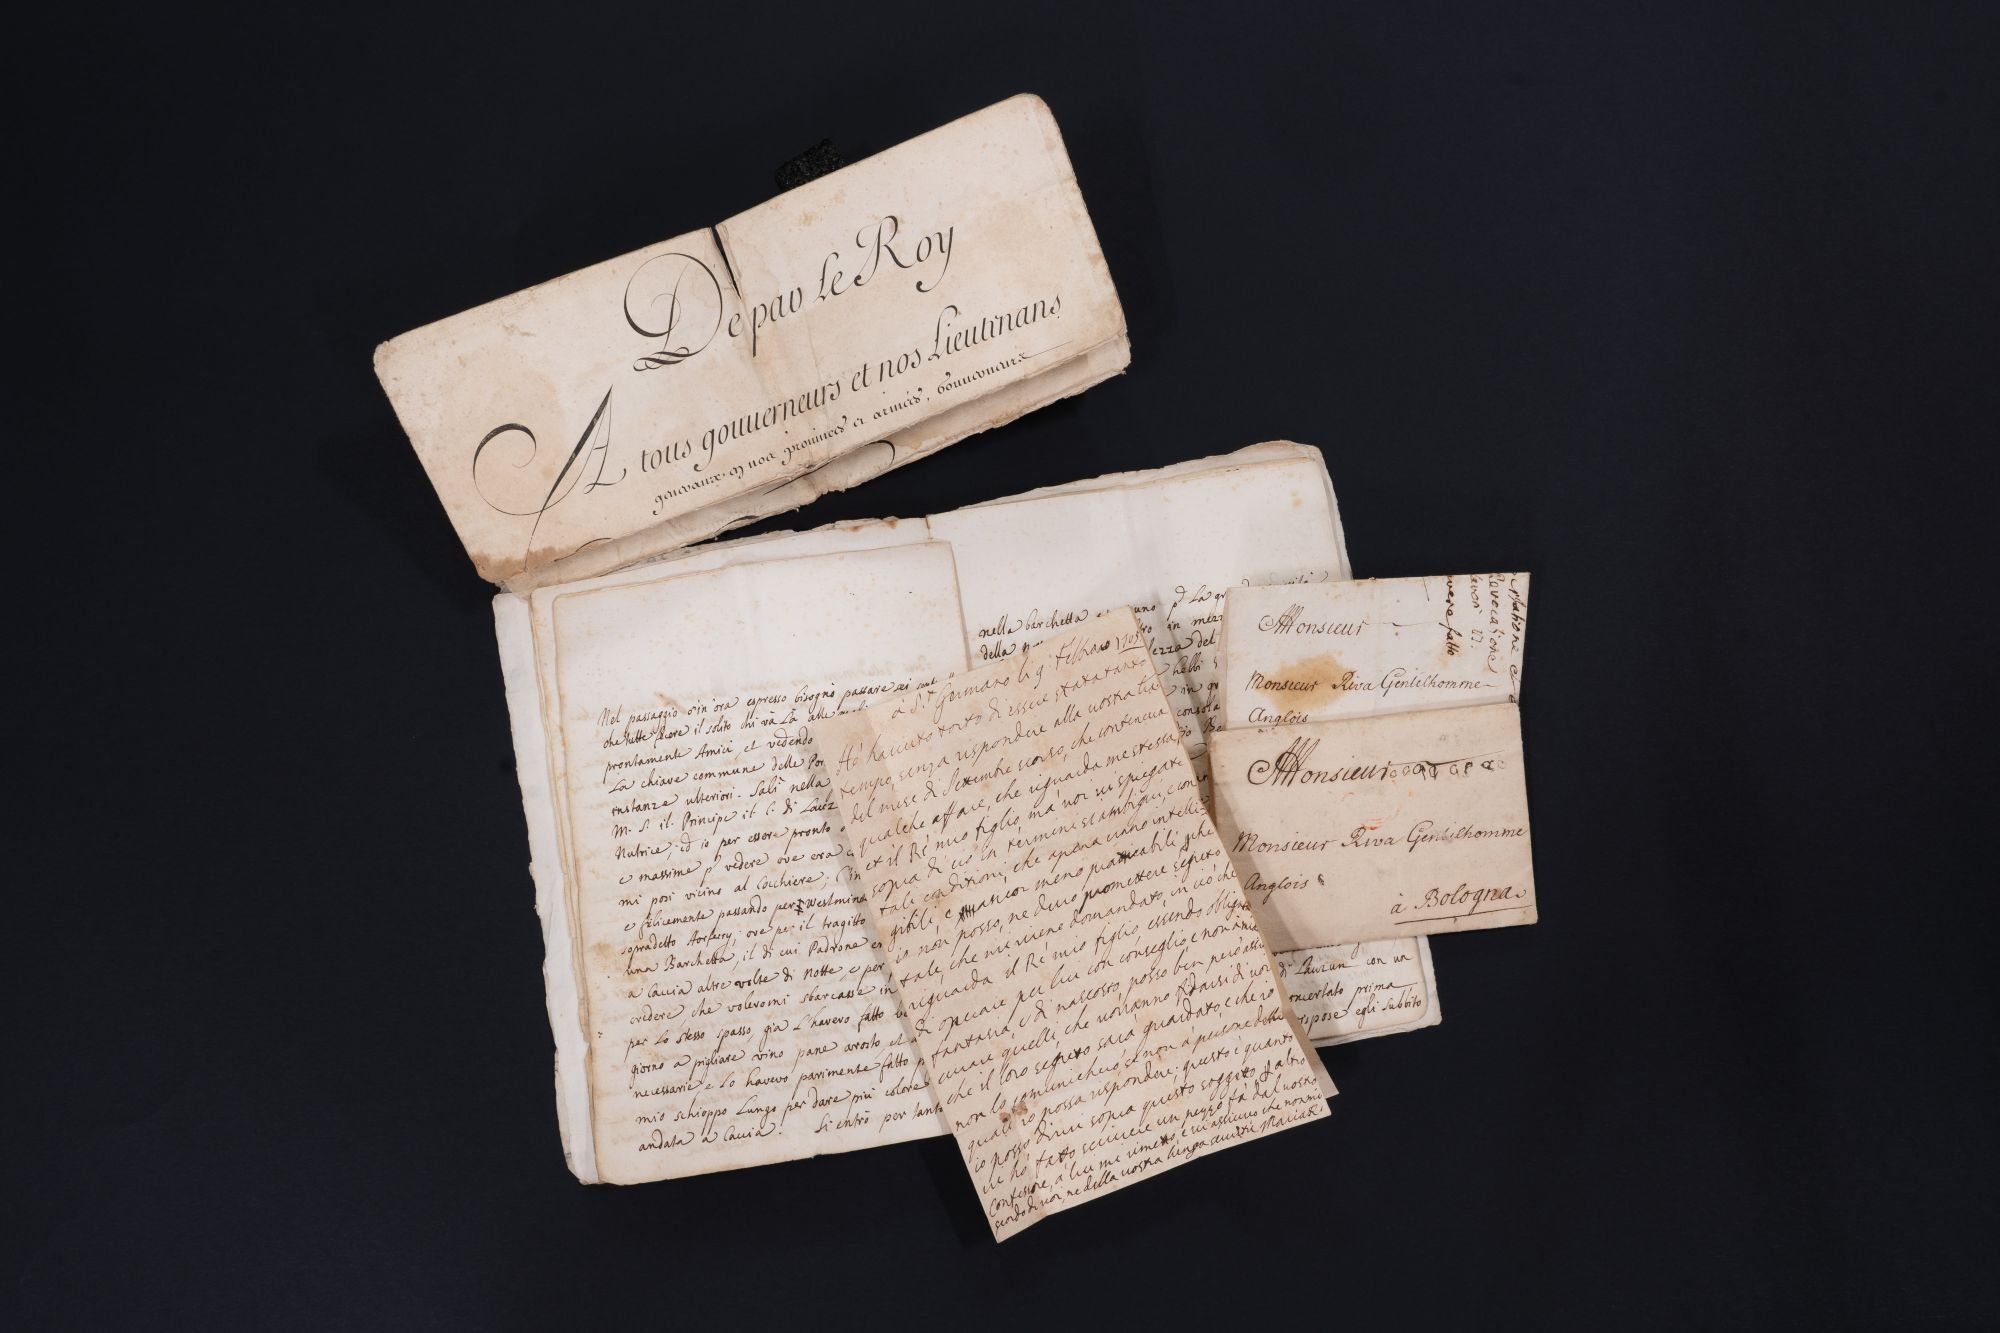 De par le Roy
A tous gouuerneurs et nos Lieutenans
generaux en nos prouinces et armées, Gouuerneurs
Nel passaggio in ora espresso bisognò passare sei
che tutte fuore il solito chi và Là alle
prontamente Amici, et vedendo
La chiave commune delle Por
instanze ulteriori. Salì nella
M. S. il Principe il C. di Lauz
Nutrice, ed io per essere pronto
e massime p vedere ove era
mi posi vicino al Cocchiere;
e felicemente passando per Westmins
sopradetto Horferry; ove per il tragitto
una Barchetta, il di cui Padrone
a Caccia altre volte di notte, e per
credere che volevomi sbarcasse in
per lo stesso spasso, già l'havevo fatto
giorno a pigliare vino pane arosto, et
necessarie e lo havevo parimente fatto
mio schioppo Lungo per dare più colore
andata a Caccia. Si entrò per tanto
nella barchetta uno p La
della in mez
lezza del
hebbi
in
consola
di Lauzun con un
concertato prima
rispose egli subbito
à St. Germano li 9 Febbraro 1705
Hò havuto torto di essere stata tanto
tempo senza rispondere alla vostra
del mese di Settembre scorso, che conteneva
qualche affare, che riguarda me stessa,
et il Rè mio figlio, ma voi vi spiegate
sopra di ciò in termini si ambigui, e con
tali conditioni, che apena siano intelli
gibili, e ancor meno praticabili, p che
io non posso, ne devo promettere segreto
tale, che mi viene domandato, in ciò che
riguarda il Rè mio figlio, essendo obligata
di operare per lui con conseglio, e non a mia
fantasia, e di nascosto, posso ben però assi
curare quelli, che vorranno fidarsi di voi
che il loro segreto sarà guardato, e che io
non lo comunicherò, se non a persone delle
quali io possa rispondere; questo è quanto
io posso dirvi sopra questo soggetto p altro
vi hò fatto scrivere un pezzo fà dal vostro
Confessore, a lui mi rimetto, e vi assicuro che non mi
scordo di voi, ne della vostra lunga servitù Maria R.
Monsieur
Monsieur Riva Gentilhomme
Anglois
havere fatto
Monsieur
Monsieur Riva Gentilhomme
Anglois
à Bologna